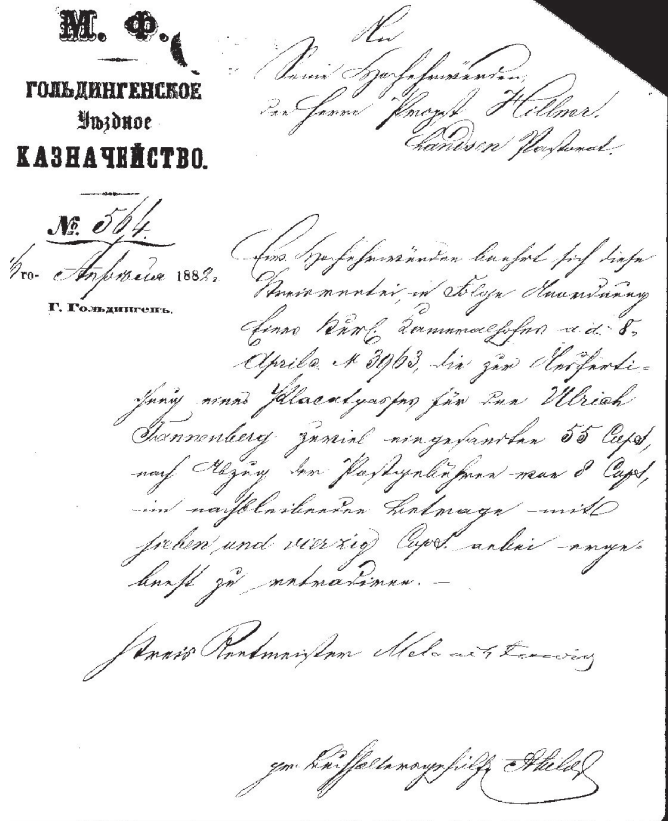 М. Ф.
ГОЛЬДИНГЕНСКОЕ
Уѣздное
КАЗНАЧЕЙСТВО.
№ 564.
го Апрѣля 1882.
Г. Гольдингенъ.
An
Seine Hochehrwürden,
den Herrn Propst Hillner.
Landsen Pastorat.
Ew. Hochehrwürden beehrt sich diese
Kreisrentei, in Folge Anordnung
Eines Kurl. Kameralhofes a. d. 8.
Aprils № 3963, die zur Ausferti-
gung eines Placatpasses für den Ulrich
Tannenberg zuviel eingesandten 55 Cop.,
nach Abzug der Postgebühren von 8 Cop.,
im nachbleibenden Betrage mit
sieben und vierzig Cop. anbei erge-
benst zu retradiren. —
Kreis Rentmeister
pr. Buchhaltersgehilfe